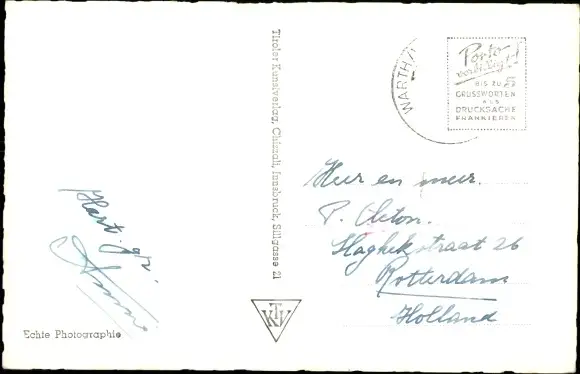 Tiroler Kunstverlag, Chizzali, Innsbruck, Sillgasse 21
WARTH/
Porto
BIS ZU 5
GRUSSWORTEN
ALS
DRUCKSACHE
FRANKIEREN
Heer en mevr.
P. Cleton.
straat 26
Rotterdam
Holland
Hart. gr.
TKV
Echte Photographie